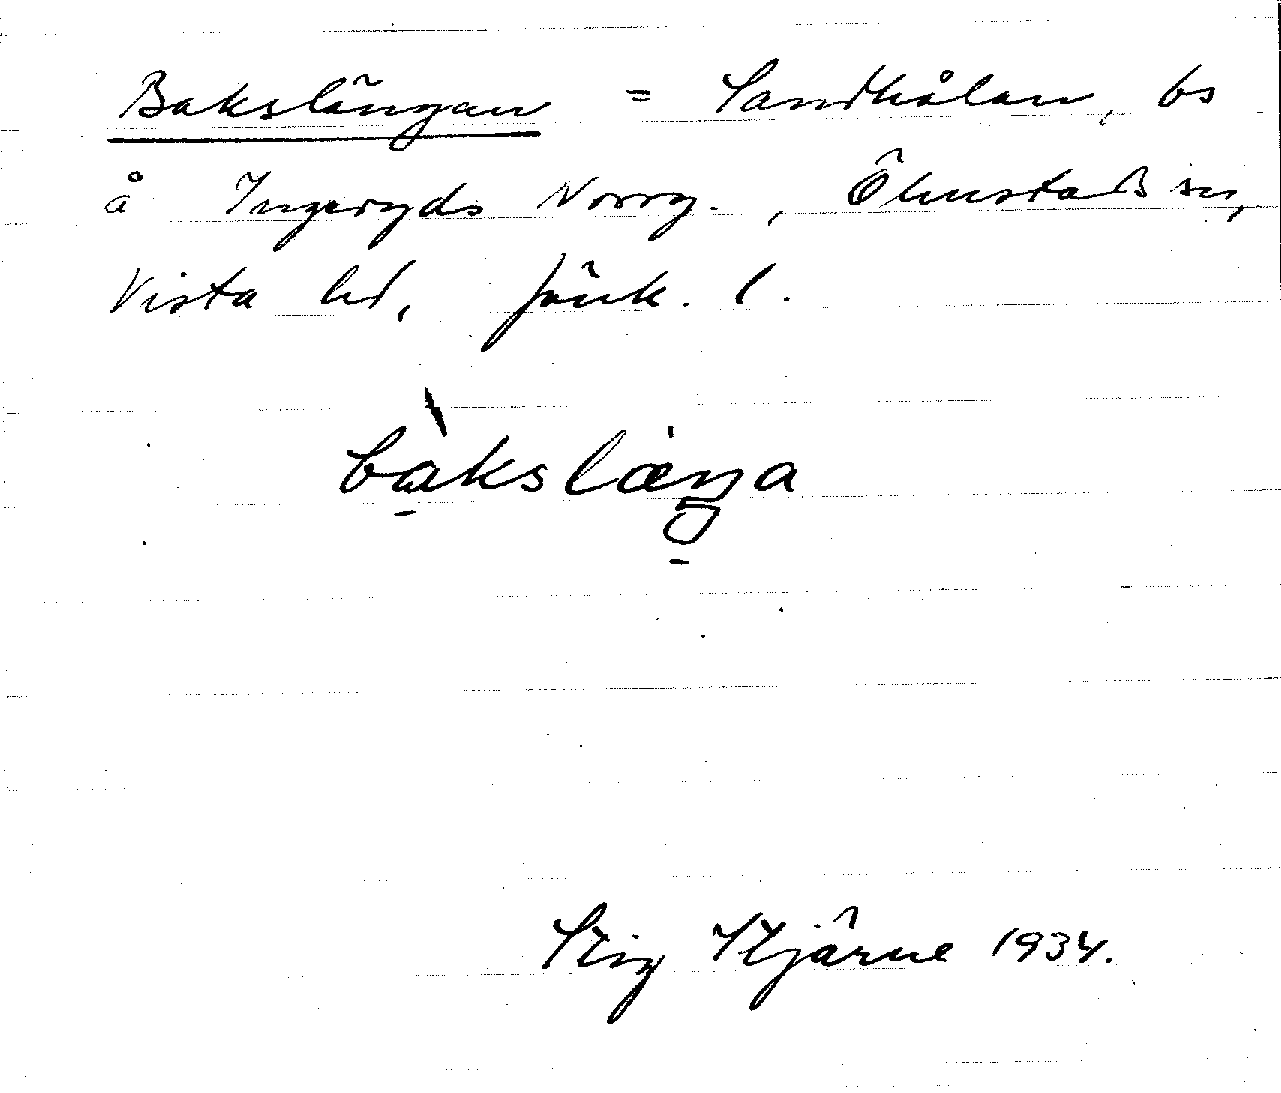 Bakslängan = Sandhålan, bs
å Ingeryds Norrg., Ölmstads sn,
Vista hd, Jönk. l.
bàkslæŋa
Stig Stjärne 1934.